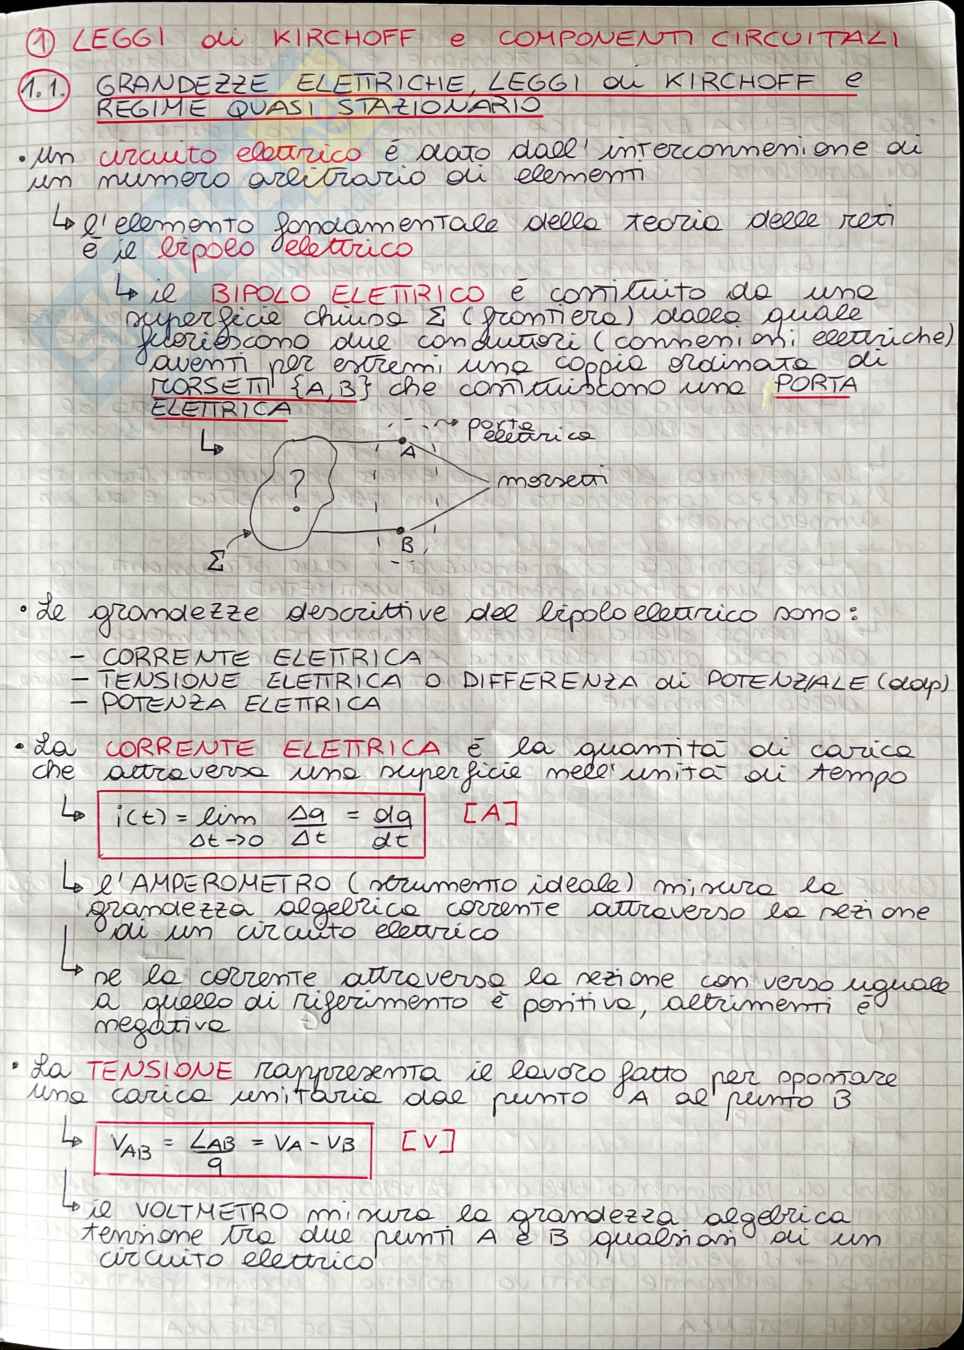 ① LEGGI di KIRCHOFF e COMPONENTI CIRCUITALI
1.1. GRANDEZZE ELETTRICHE, LEGGI di KIRCHOFF e
REGIME QUASI STAZIONARIO
• Un circuito elettrico è dato dall'interconnenione di
un numero arbitrario di elementi
↳ l'elemento fondamentale della teoria delle reti
è il bipolo elettrico
↳ il BIPOLO ELETTRICO è costituito da una
superficie chiusa Σ (frontiera) dalla quale
fuoriescono due conduttori (connenioni elettriche)
aventi per estremi una coppia ordinata di
MORSETTI {A,B} che costituiscono una PORTA
ELETTRICA
↳ porta
elettrica
A
? morsetti
B
Σ
• Le grandezze descrittive del bipolo elettrico sono:
- CORRENTE ELETTRICA
- TENSIONE ELETTRICA O DIFFERENZA di POTENZIALE (ddp)
- POTENZA ELETTRICA
• La CORRENTE ELETTRICA è la quantità di carica
che attraversa una superficie nell'unità di tempo
↳ i(t) = lim Δq/Δt = dq/dt [A]
Δt→0
↳ l'AMPEROMETRO (strumento ideale) misura la
grandezza algebrica corrente attraverso la sezione
di un circuito elettrico
↳ se la corrente attraversa la sezione con verso uguale
a quello di riferimento è positiva, altrimenti è
negativa
• La TENSIONE rappresenta il lavoro fatto per spostare
una carica unitaria dal punto A al punto B
↳ V_AB = L_AB/q = V_A - V_B [V]
↳ il VOLTMETRO misura la grandezza algebrica
tensione tra due punti A e B qualsiasi di un
circuito elettrico